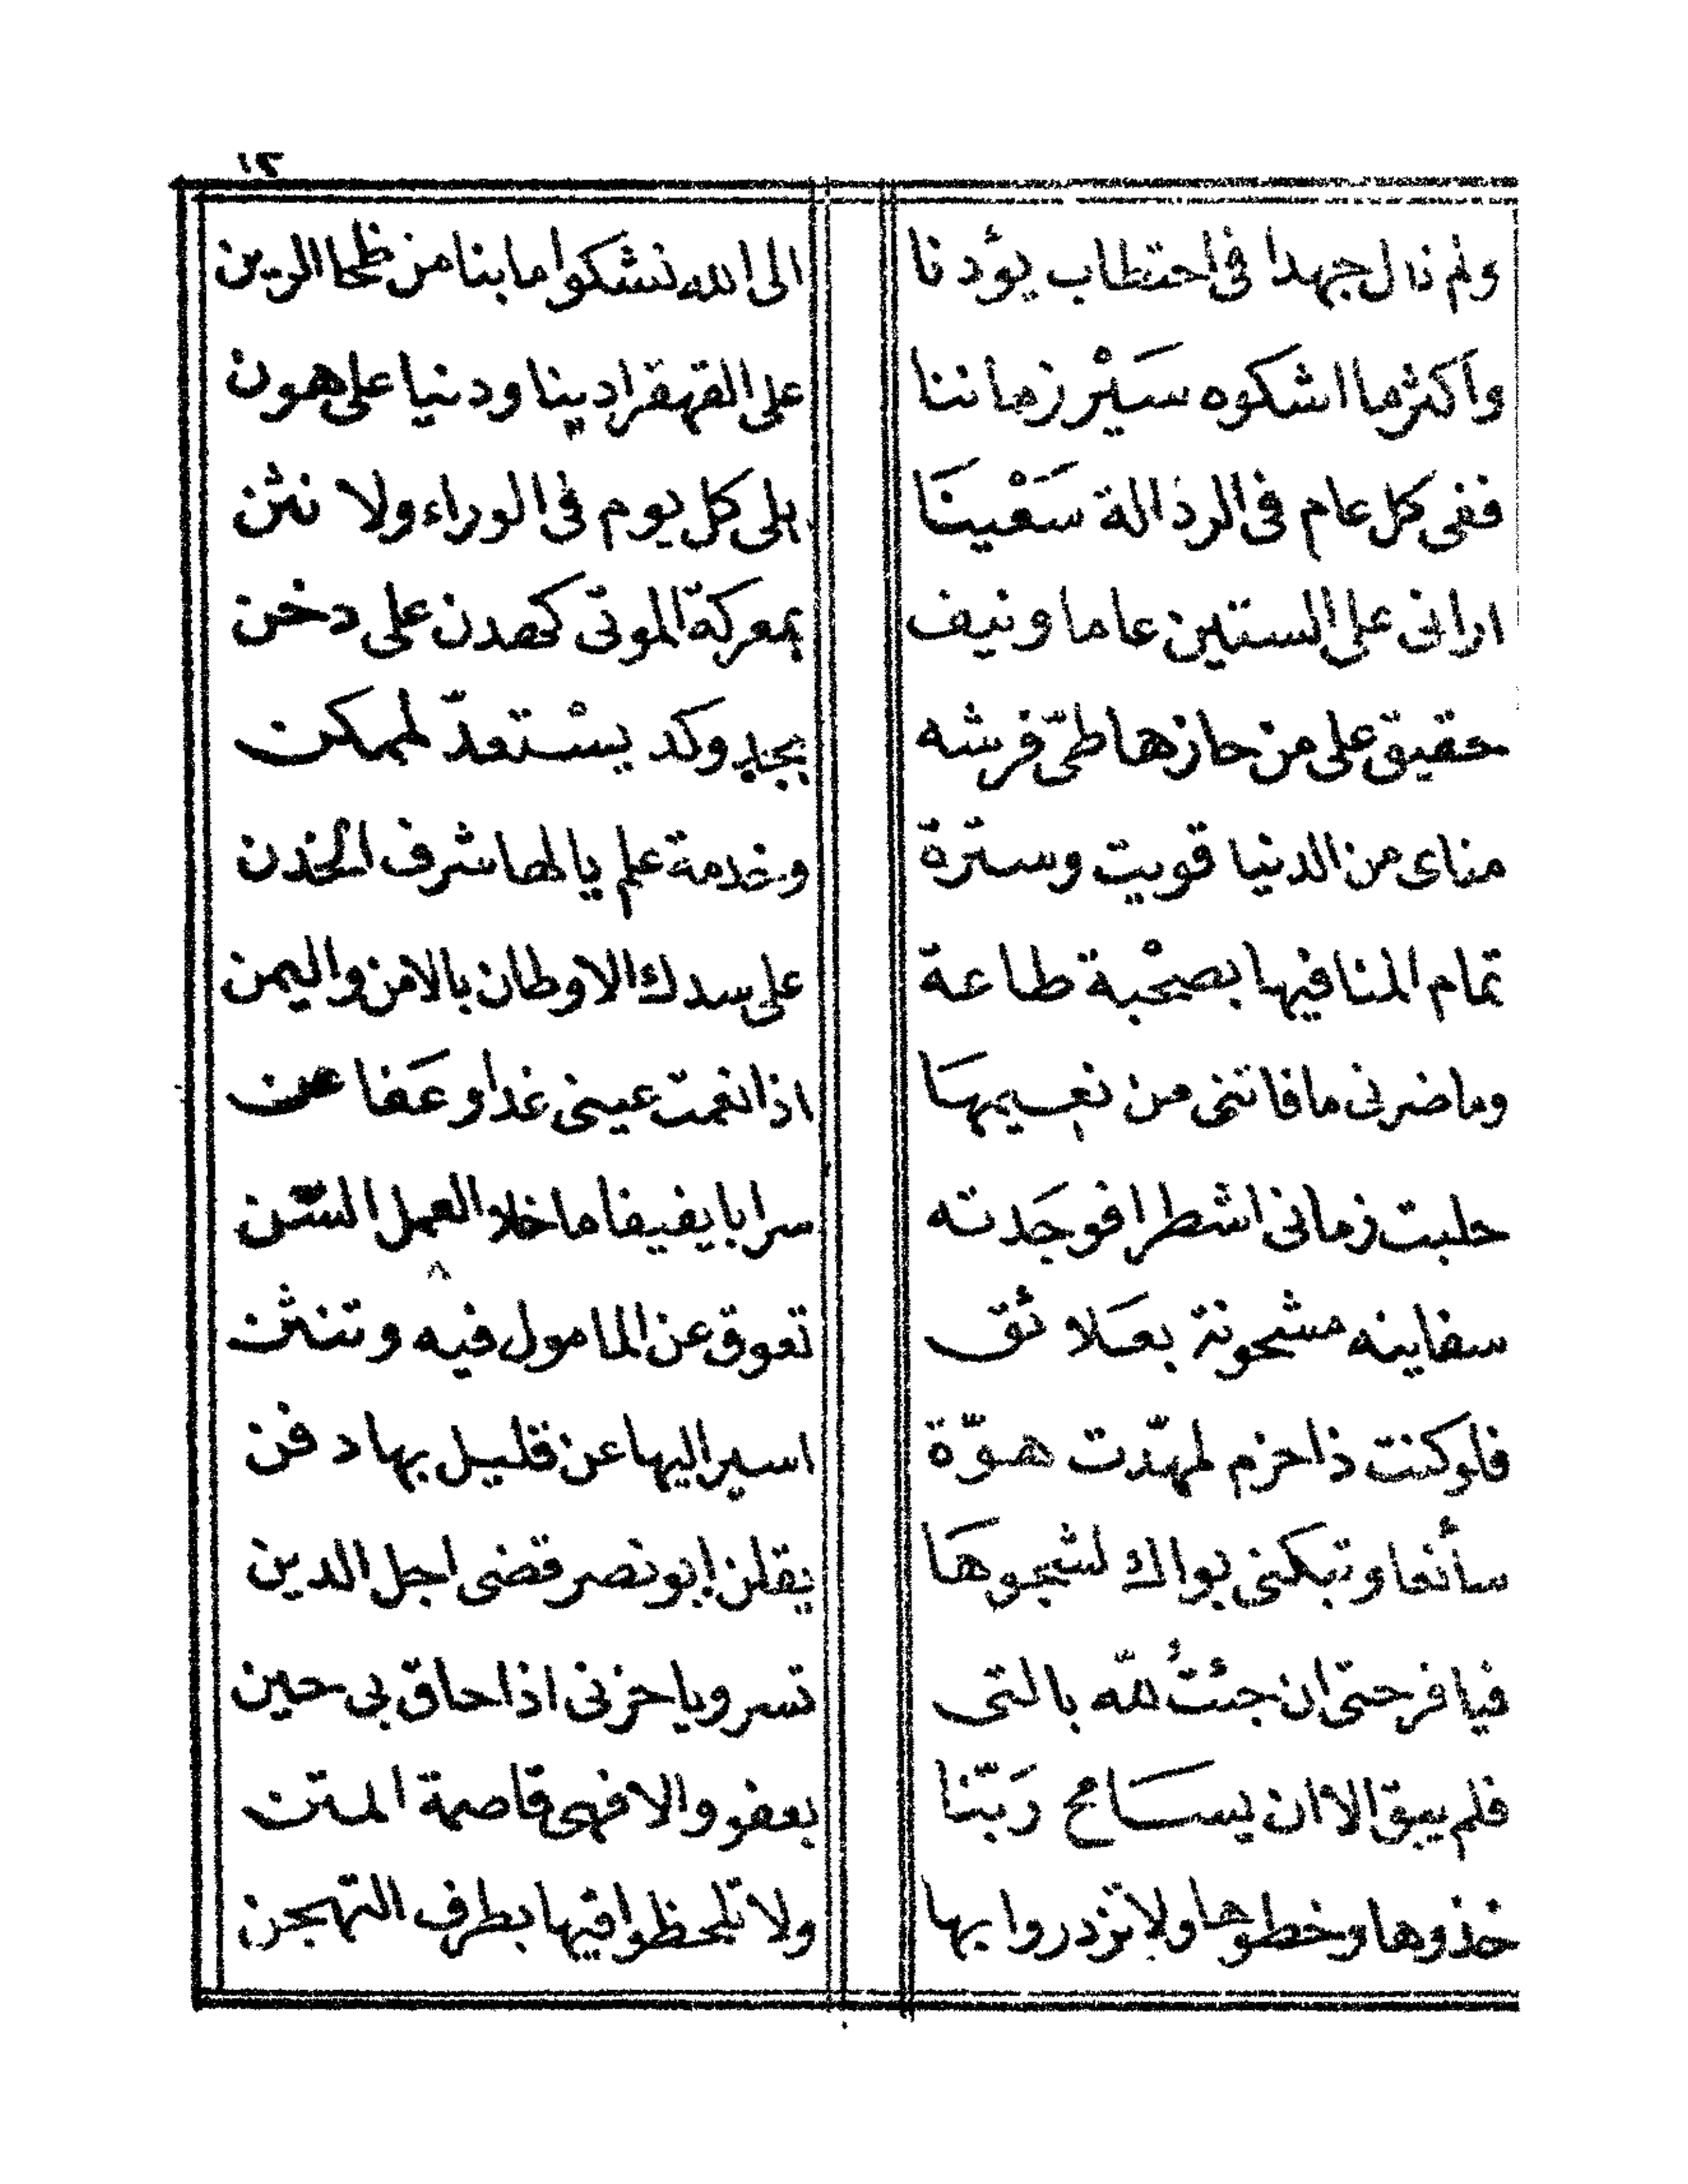 ١٢
ولم نال جهدا فى احتطاب يؤدنا الى الله نشكوا ما بنا من ظحا الرين
واكثر ما اشكوه سَيْر زماننا على القهقرا دينا ودنيا على هون
ففى كل عام فى الرذالة سَعْينَا بلى كل يوم فى الوراء ولا نثن
ارانى على الستين عاما ونيف بمعركة الموتى كحصدن على دخن
حقيق على من حازها طىّ فرشه بجد وكد يسْتعدّ لممكن
مناى من الدنيا قويت وسترة وخدمة علم يا لها شرف الخدن
تمام المنا فيها بصحْبة طاعة على سدك الاوطان بالامن واليمن
وما ضرنى ما فاتنى من نعيمهَا اذا نعمت عينى غدا وعَفا عن
حلبت زمانى اشطرا فوجَدته سرابا يفيفا ما خلا العمل السّن
سفاينه مشحونة بعَلائق تعوق عن المامول فيه وتنثن
فلو كنت ذا حزم لمهّدت هوّة اسير اليها عن قليل بها دفن
سأنعا وتبكنى بواك لشجوهَا يقلن ابو نصر قضى اجل الدين
فيا فرحتى ان جئتُ للّه بالتى تسر ويا حزنى اذا حاق بى حين
فلم يبق الا ان يسَامح رَبّنا بعفو والا فهى قاصمة المتن
خذوها وخطوها ولا تزدروا بها ولا تلحظوا فيها بطرف التهجن